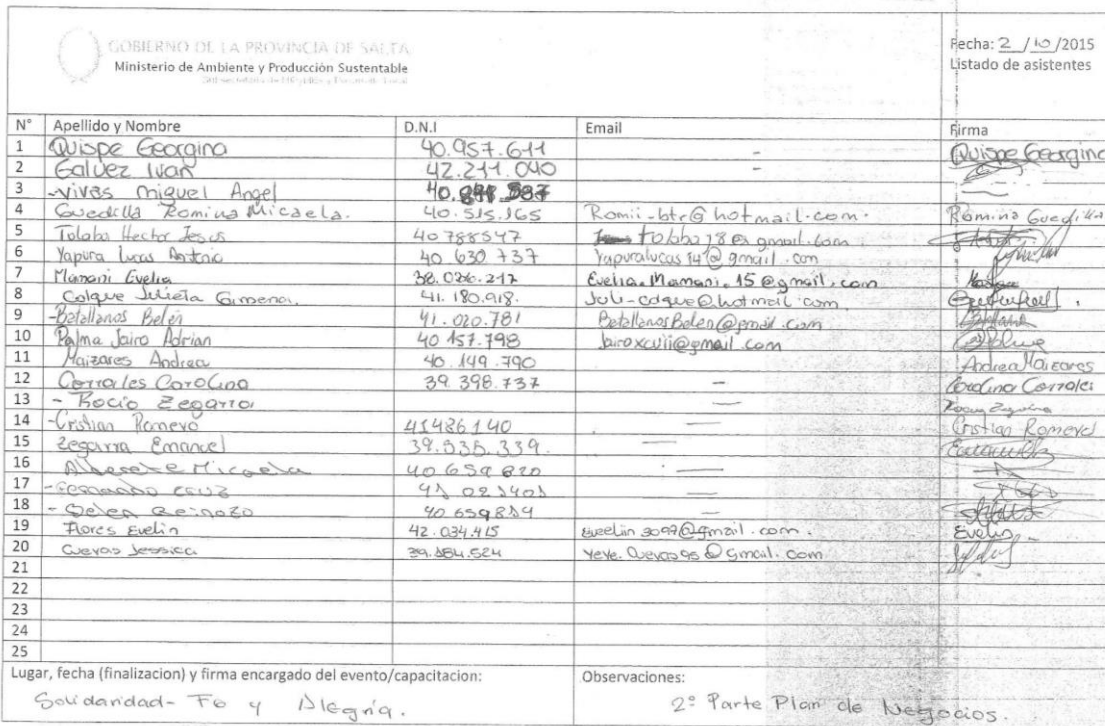 GOBIERNO DE LA PROVINCIA DE SALTA
Ministerio de Ambiente y Producción Sustentable
Fecha: 2 / 10 /2015
Listado de asistentes
N° Apellido y Nombre D.N.I Email Firma
1 Quispe Georgina 40.957.611 - Quispe Georgina
2 Galvez Ivan 42.211.040 -
3 -Vivas Miguel Angel
4 Guedilla Romina Micaela. 40.515.165 Romii-btr@hotmail.com. Romina Guedilla
5 Tolaba Hector Jesus 40788547
6 Yapura Lucas Antonio 40 630 737 Yapuralucas14@gmail.com
7 Mamani Evelia 38.036.217 Evelia.Mamani.15@gmail.com
8 Colque Julieta Gimena. 41.180.918. Juli-colque@hotmail.com
9 -Betallanos Belén 41.020.781 BetallanosBelen@gmail.com
10 Palma Jairo Adrian 40 157.798 Jairoxcvii@gmail.com
11 Maizares Andrea 40.149.790 Andrea Maizares
12 Corrales Carolina 39.398.737 - Carolina Corrales
13 - Rocio Zegarra -
14 -Cristian Romero 41486140 - Cristian Romero
15 Zegarra Emanuel 39.535.339. -
16 Micaela 40 659 820 -
17 -Fernando Cruz -
18 - Belen Reinozo 40 659814 -
19 Flores Evelin 42.034.415 Evelin
20 Cuevas Jessica
21
22
23
24
25
Lugar, fecha (finalizacion) y firma encargado del evento/capacitacion:
Solidaridad- Fe y Alegría.
Observaciones:
2º Parte Plan de Negocios.